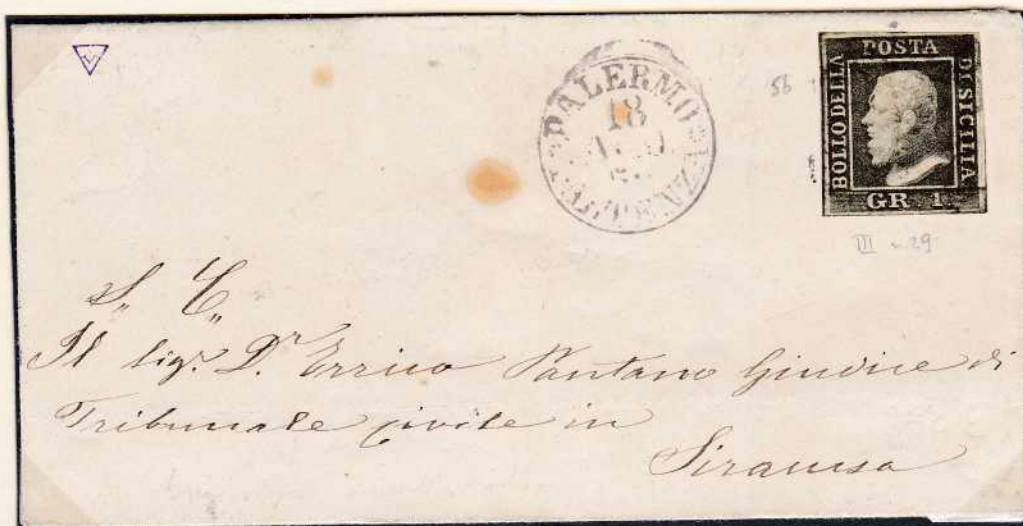 PALERMO
18
PARTENZA
BOLLO DELLA
POSTA
DI SICILIA
GR. 1
56
III 29
S. C.
Il Sigr. Dr. Errico Pantano Giudice di
Tribunale civile in
Siracusa